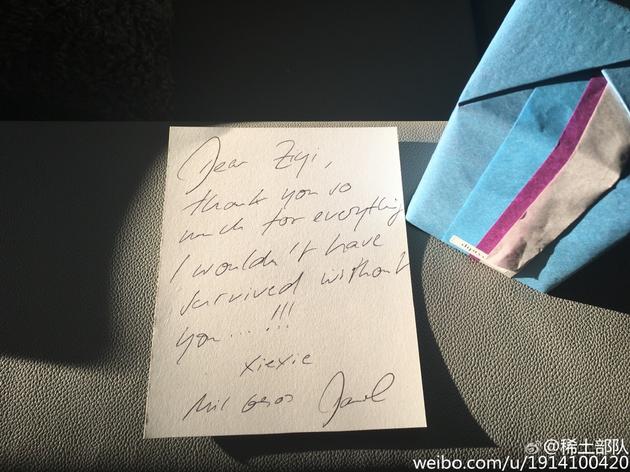 Dear Ziyi,
thank you so
much for everything
I wouldn't have
survived without
you....!!!
xiexie
Mil besos
diptyque
@稀土部队
weibo.com/u/1914100420